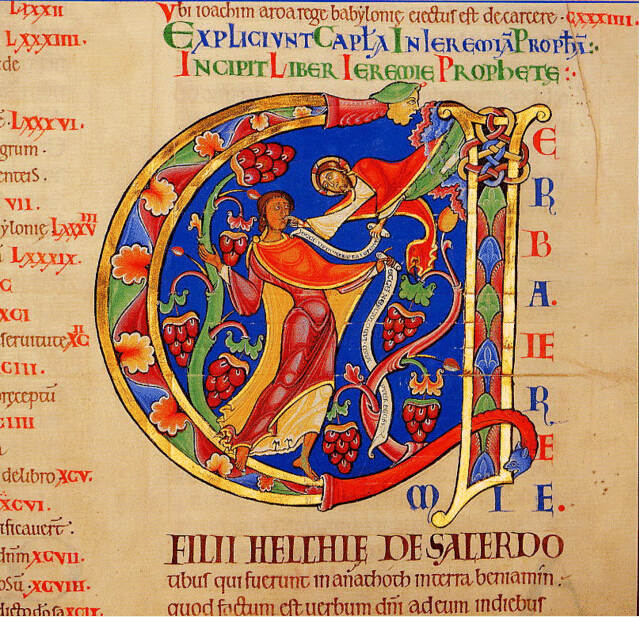 LXXXII
LXXXIIII.
de
LXXXVI.
grum.
VII.
ylonie LXXXVIII
LXXXIX.
C
XCI
seruitute XCII
CIII.
CIIII
delibro XCV.
XCVI.
ificauert̄.
dn̄m XCVII.
XCVIII.
XCIX.
Vbi ioachim aroarege babylonie eiectus est de carcere. CXXXIIII.
EXPLICIVNT CAPL̄A IN IEREMIĀ PROPHĀ:.
INCIPIT LIBER IEREMIE PROPHETE:.
V
E
R
B
A.
IE
R
E
M I E.
FILII HELCHIĘ DE SACERDO
tibus qui fuerunt in anathoth in terra beniamin.
quod factum est uerbum dn̄i ad eum indiebus